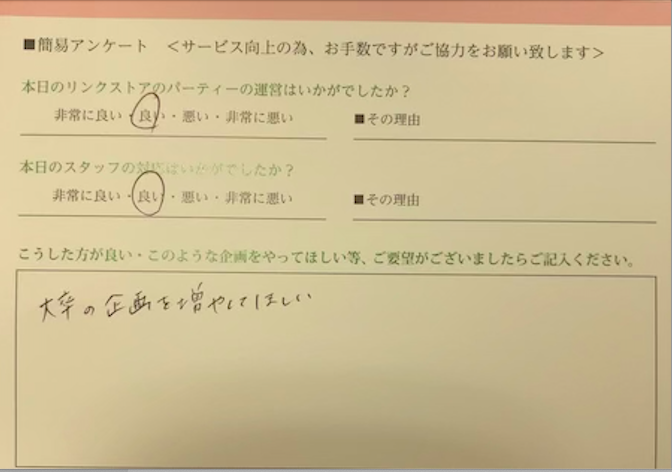 ■簡易アンケート ＜サービス向上の為、お手数ですがご協力をお願い致します＞
本日のリンクストアのパーティーの運営はいかがでしたか？
非常に良い・良い・悪い・非常に悪い ■その理由
本日のスタッフの対応はいかがでしたか？
非常に良い・良い・悪い・非常に悪い ■その理由
こうした方が良い・このような企画をやってほしい等、ご要望がございましたらご記入ください。
大卒の企画を増やしてほしい